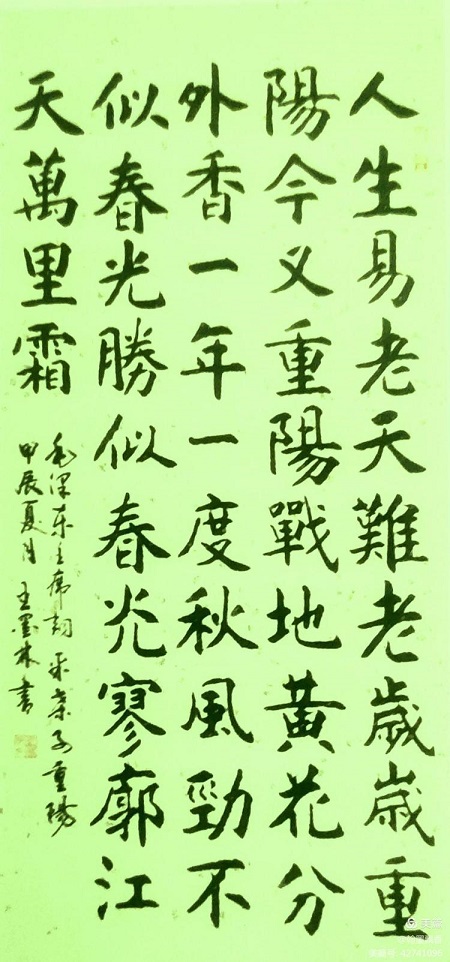 人生易老天難老歲歲重
陽今又重陽戰地黃花分
外香一年一度秋風勁不
似春光勝似春光寥廓江
天萬里霜
毛澤东主席詞采桑子重陽
甲辰夏月 王墨林書